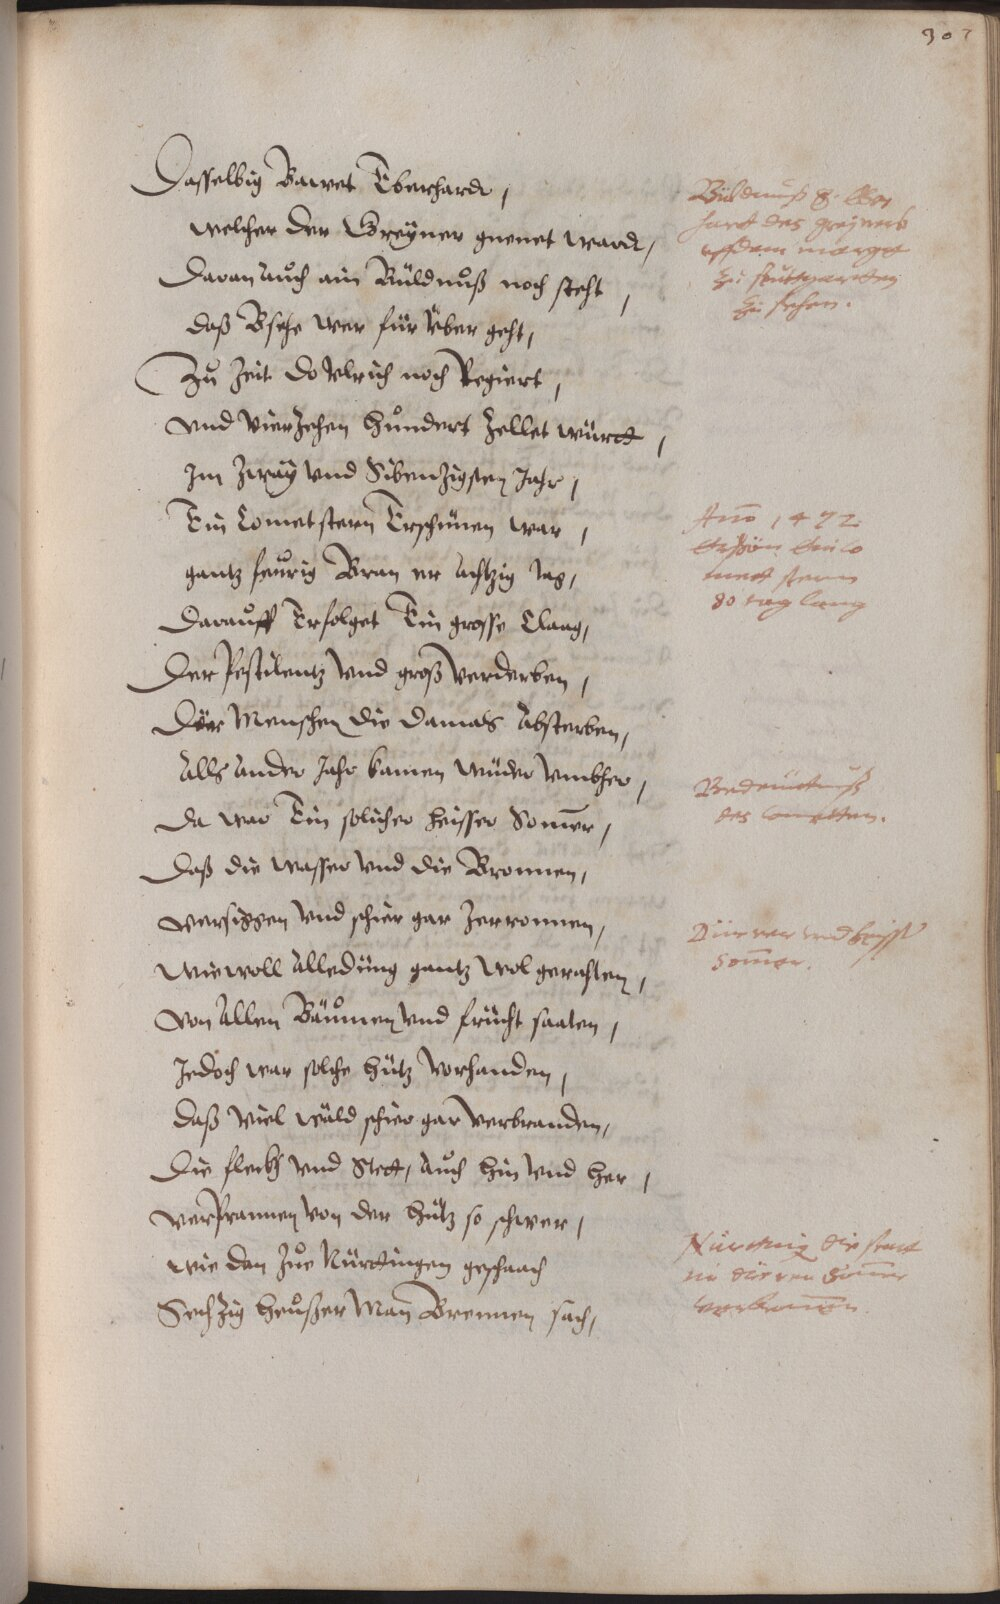 307
Dasselbig Bawet Eberhardt,
welcher der Greÿner gnenet wardt,
Daran Auch ain Büldnuß noch steht,
daß Bsehe wer für Über geht,
Zu Zeit do Ulrich noch Regiert,
und Vierzehen hundert Zellet würdt,
Im Zwaÿ und Sibenzigsten Jahr,
Ein Cometstern Erschinen war,
gantz feurig Bran er Achtzig tag,
Darauff Erfolget Ein grosse Claag,
Der Pestilentz Und groß Verderben,
Der Menschen die damals Absterben,
Alls Ander Jahr kamen wider Umbher,
Da war Ein solicher heisser Sommer,
Daß die wasser Und die Bronnen,
versiggen Und schier gar Zerronnen,
wiewoll Alleding gantz wol gerahten,
von Allen Bäumen Und frücht saaten,
Jedoch war solche hütz Vorhanden,
daß Viel wäld schier gar Verbranden,
Die fleckh Und Stett, Auch hin Und her,
verPrannen Von der hütz so schwer,
wie dan Zue Nürttingen geschaach
Sechzig heußer Man Brennen sach,
Büldnuß g. Eber
hardt des greÿners
uffdem marggt
zu stuttgardten
zu sehen.
Ano 1472
Erschin ein co
mett stern
80 tag lang
Bedeutnuß
des Cometten.
Dürrer und heisser
Sommer.
Nürtting die statt
im dürren Sommer
verbronnen